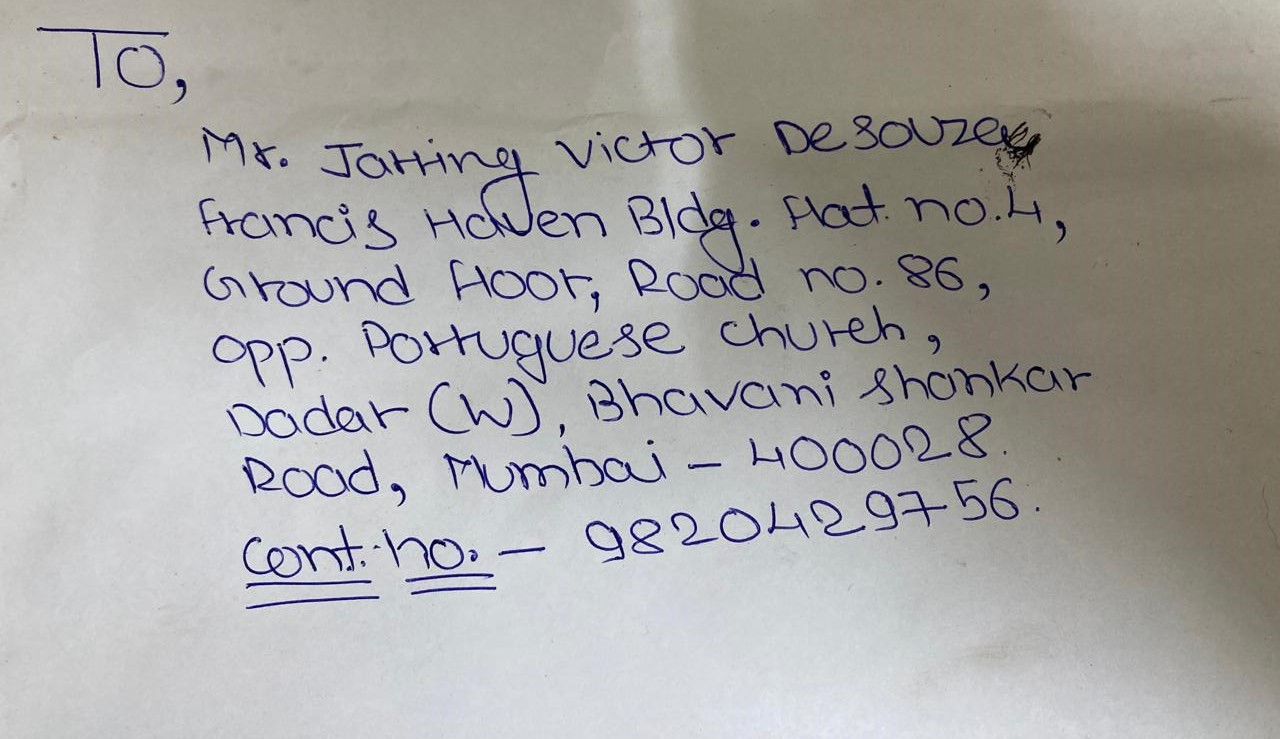 To,
Mr. Jarring Victor Desouze
Francis Haven Bldg. Flat no.4,
Ground Floor, Road no. 86,
Opp. Portuguese Church,
Dadar (W), Bhavani Shankar
Road, Mumbai - 400028.
Cont. no. - 9820429756.